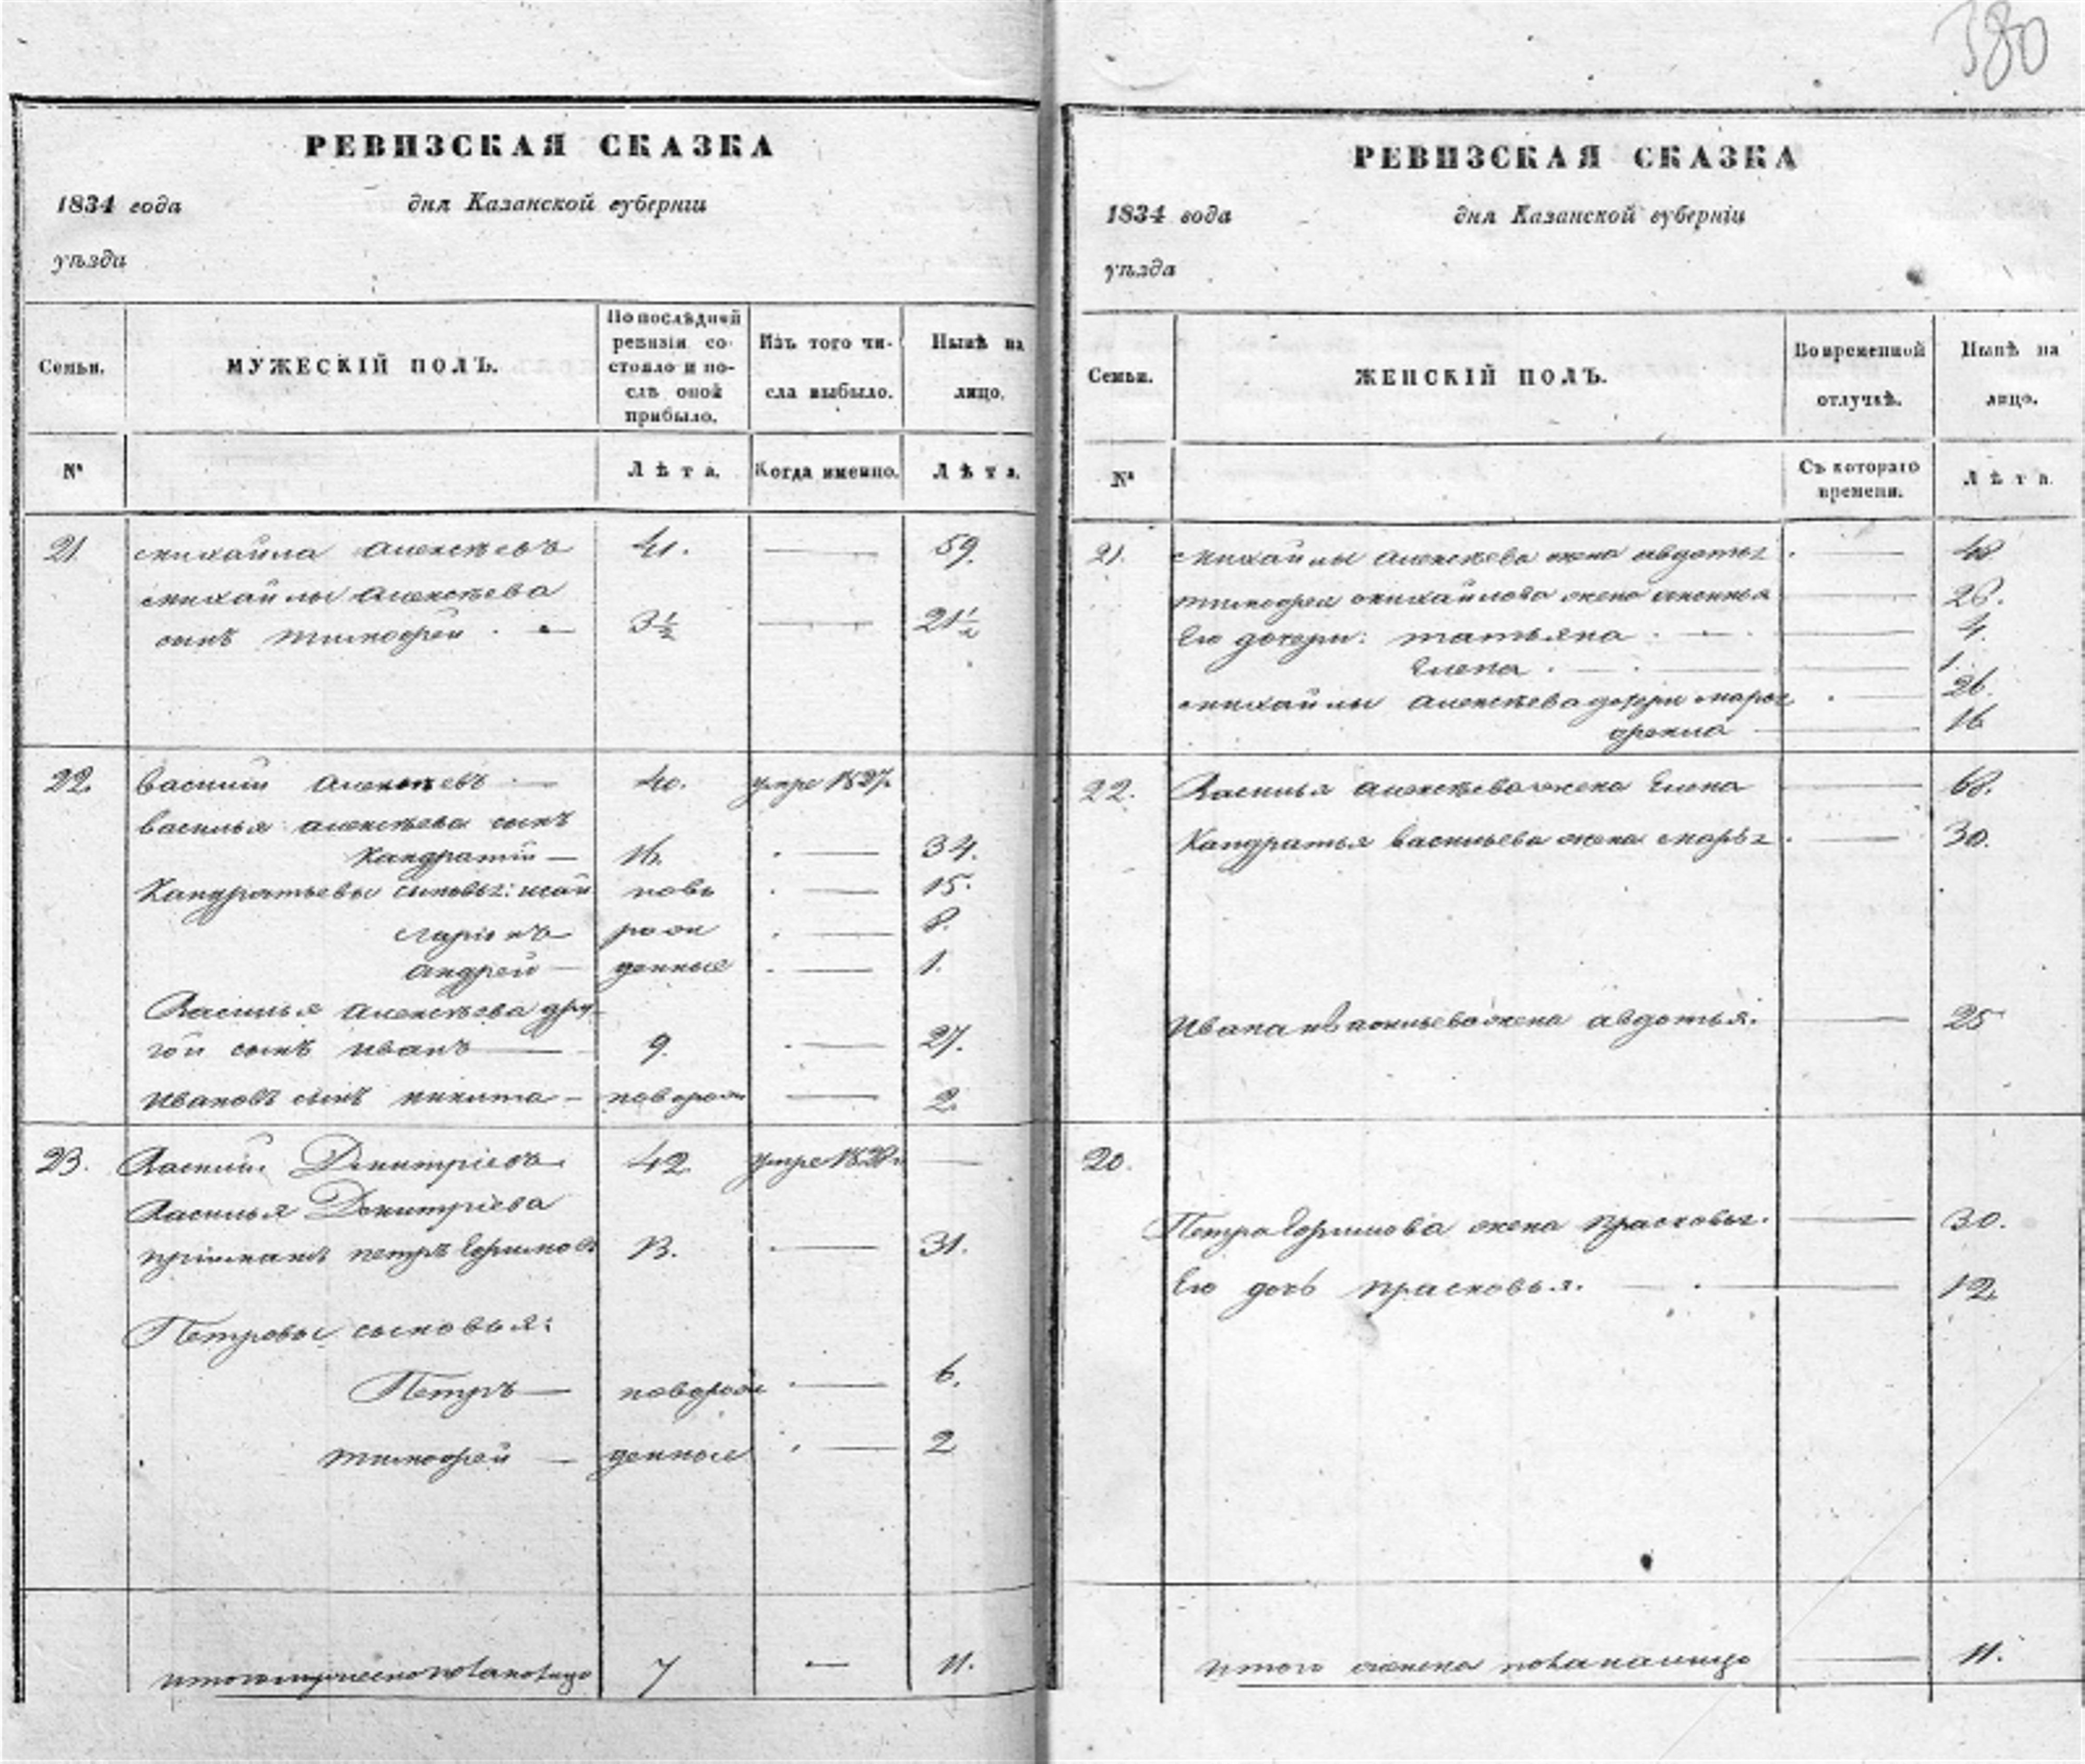 380
РЕВИЗСКАЯ СКАЗКА
1834 года дня Казанской губерніи
уѣзда
Семьи. МУЖЕСКІЙ ПОЛЪ. По послѣдней ревизіи состояло и послѣ оной прибыло. Изъ того числа выбыло. Нынѣ на лицо.
№ Лѣта. Когда именно. Лѣта.
21 михайла алексѣевъ 41. 59.
михайлы алексѣева
сынъ тимофей 3½ 21½
22. василий алексѣевъ 40. умре 1827.
василья алексѣева сынъ
Кандратий 16. 34.
Кандратьевы сыновья: исай новъ 15.
ларіонъ рож 8.
андрей денные 1.
Василья алексѣева дру
гой сынъ иванъ 9. 27.
ивановъ сынъ никита новорож 2
23. Василий Дмитріевъ 42 умре 1828
Василья Дмитріева
пріимышъ петръ Ефимовъ 13. 31.
Петровы сыновья:
Петръ новорож 6.
тимофей денные 2
итого мужеска пола на лицо 7 11.
РЕВИЗСКАЯ СКАЗКА
1834 года дня Казанской губерніи
уѣзда
Семьи. ЖЕНСКІЙ ПОЛЪ. Во временной отлучкѣ. Нынѣ на лицо.
№ Съ котораго времени. Лѣта.
21. михайлы алексѣева жена авдотья
тимофея михайлова жена 26.
Его дочери: татьяна 4.
Елена 1.
михайлы алексѣева дочери марья 26.
фекла 16
22. Василья алексѣева жена Елена 68.
Кандратья васильева жена марья 30.
Ивана васильева жена авдотья. 25
20.
Петра Ефимова жена прасковья. 30.
Его дочь прасковья. 12
итого женска пола на лицо 11.